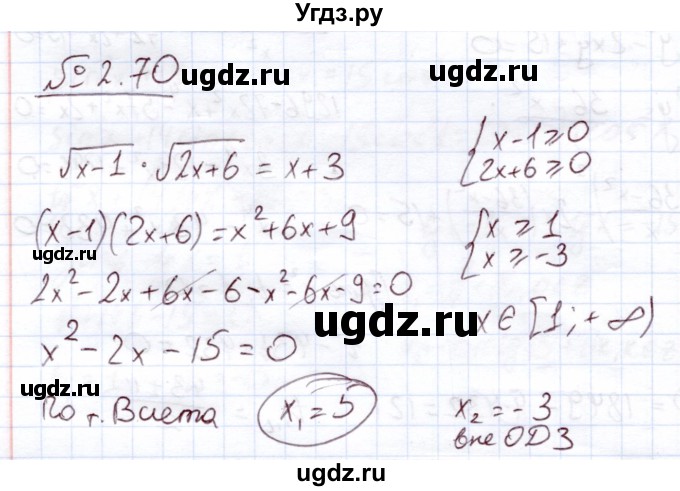 Угдз.ру
№ 2.70
ugdz.ru
ugdz.ru
√x-1 · √2x+6 = x+3
{x-1 ≥ 0
2x+6 ≥ 0
(x-1)(2x+6) = x²+6x+9
ugdz.ru
{x ≥ 1
x ≥ -3
2x²-2x+6x-6-x²-6x-9=0
ugdz.ru
x ∈ [1; +∞)
x²-2x-15=0
ugdz.ru
По т. Виета
x₁ = 5
x₂ = -3
вне ОДЗ
ugdz.ru
ugdz.ru
ugdz.ru